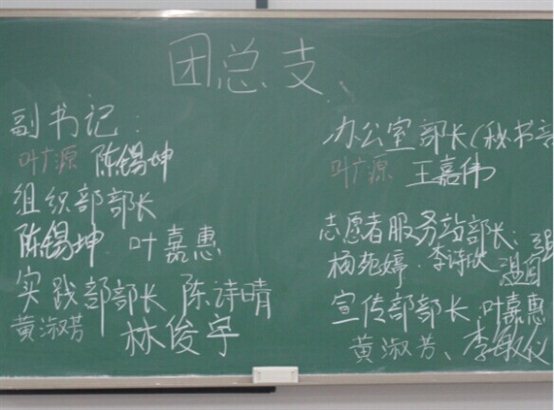 团总支
副书记:
叶广源 陈锡坤
组织部部长
陈锡坤 叶嘉惠
实践部部长 陈诗晴
黄淑芳 林俊宇
办公室部长(秘书部
叶广源 王嘉伟
志愿者服务站部长:
杨苑婷 李诗欣
宣传部部长:叶嘉惠
黄淑芳、李敏仪